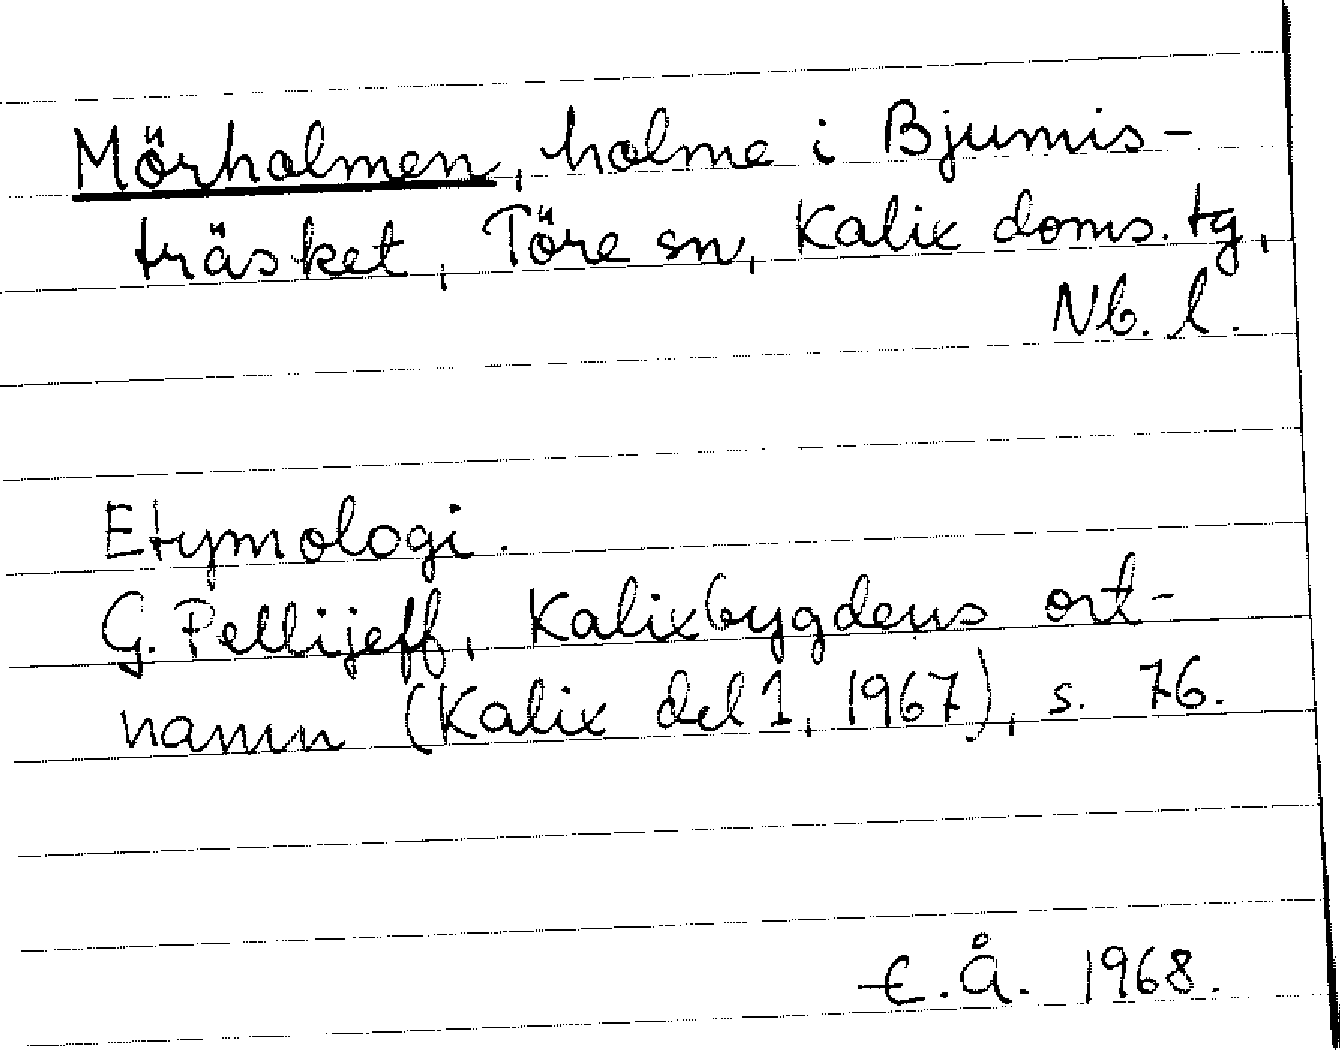 Mörholmen, holme i Bjumis-
träsket, Töre sn, Kalix doms. tg,
Nb. l.
Etymologi.
G. Pellijeff, Kalixbygdens ort-
namn (Kalix del 1, 1967), s. 76.
E. Å. 1968.